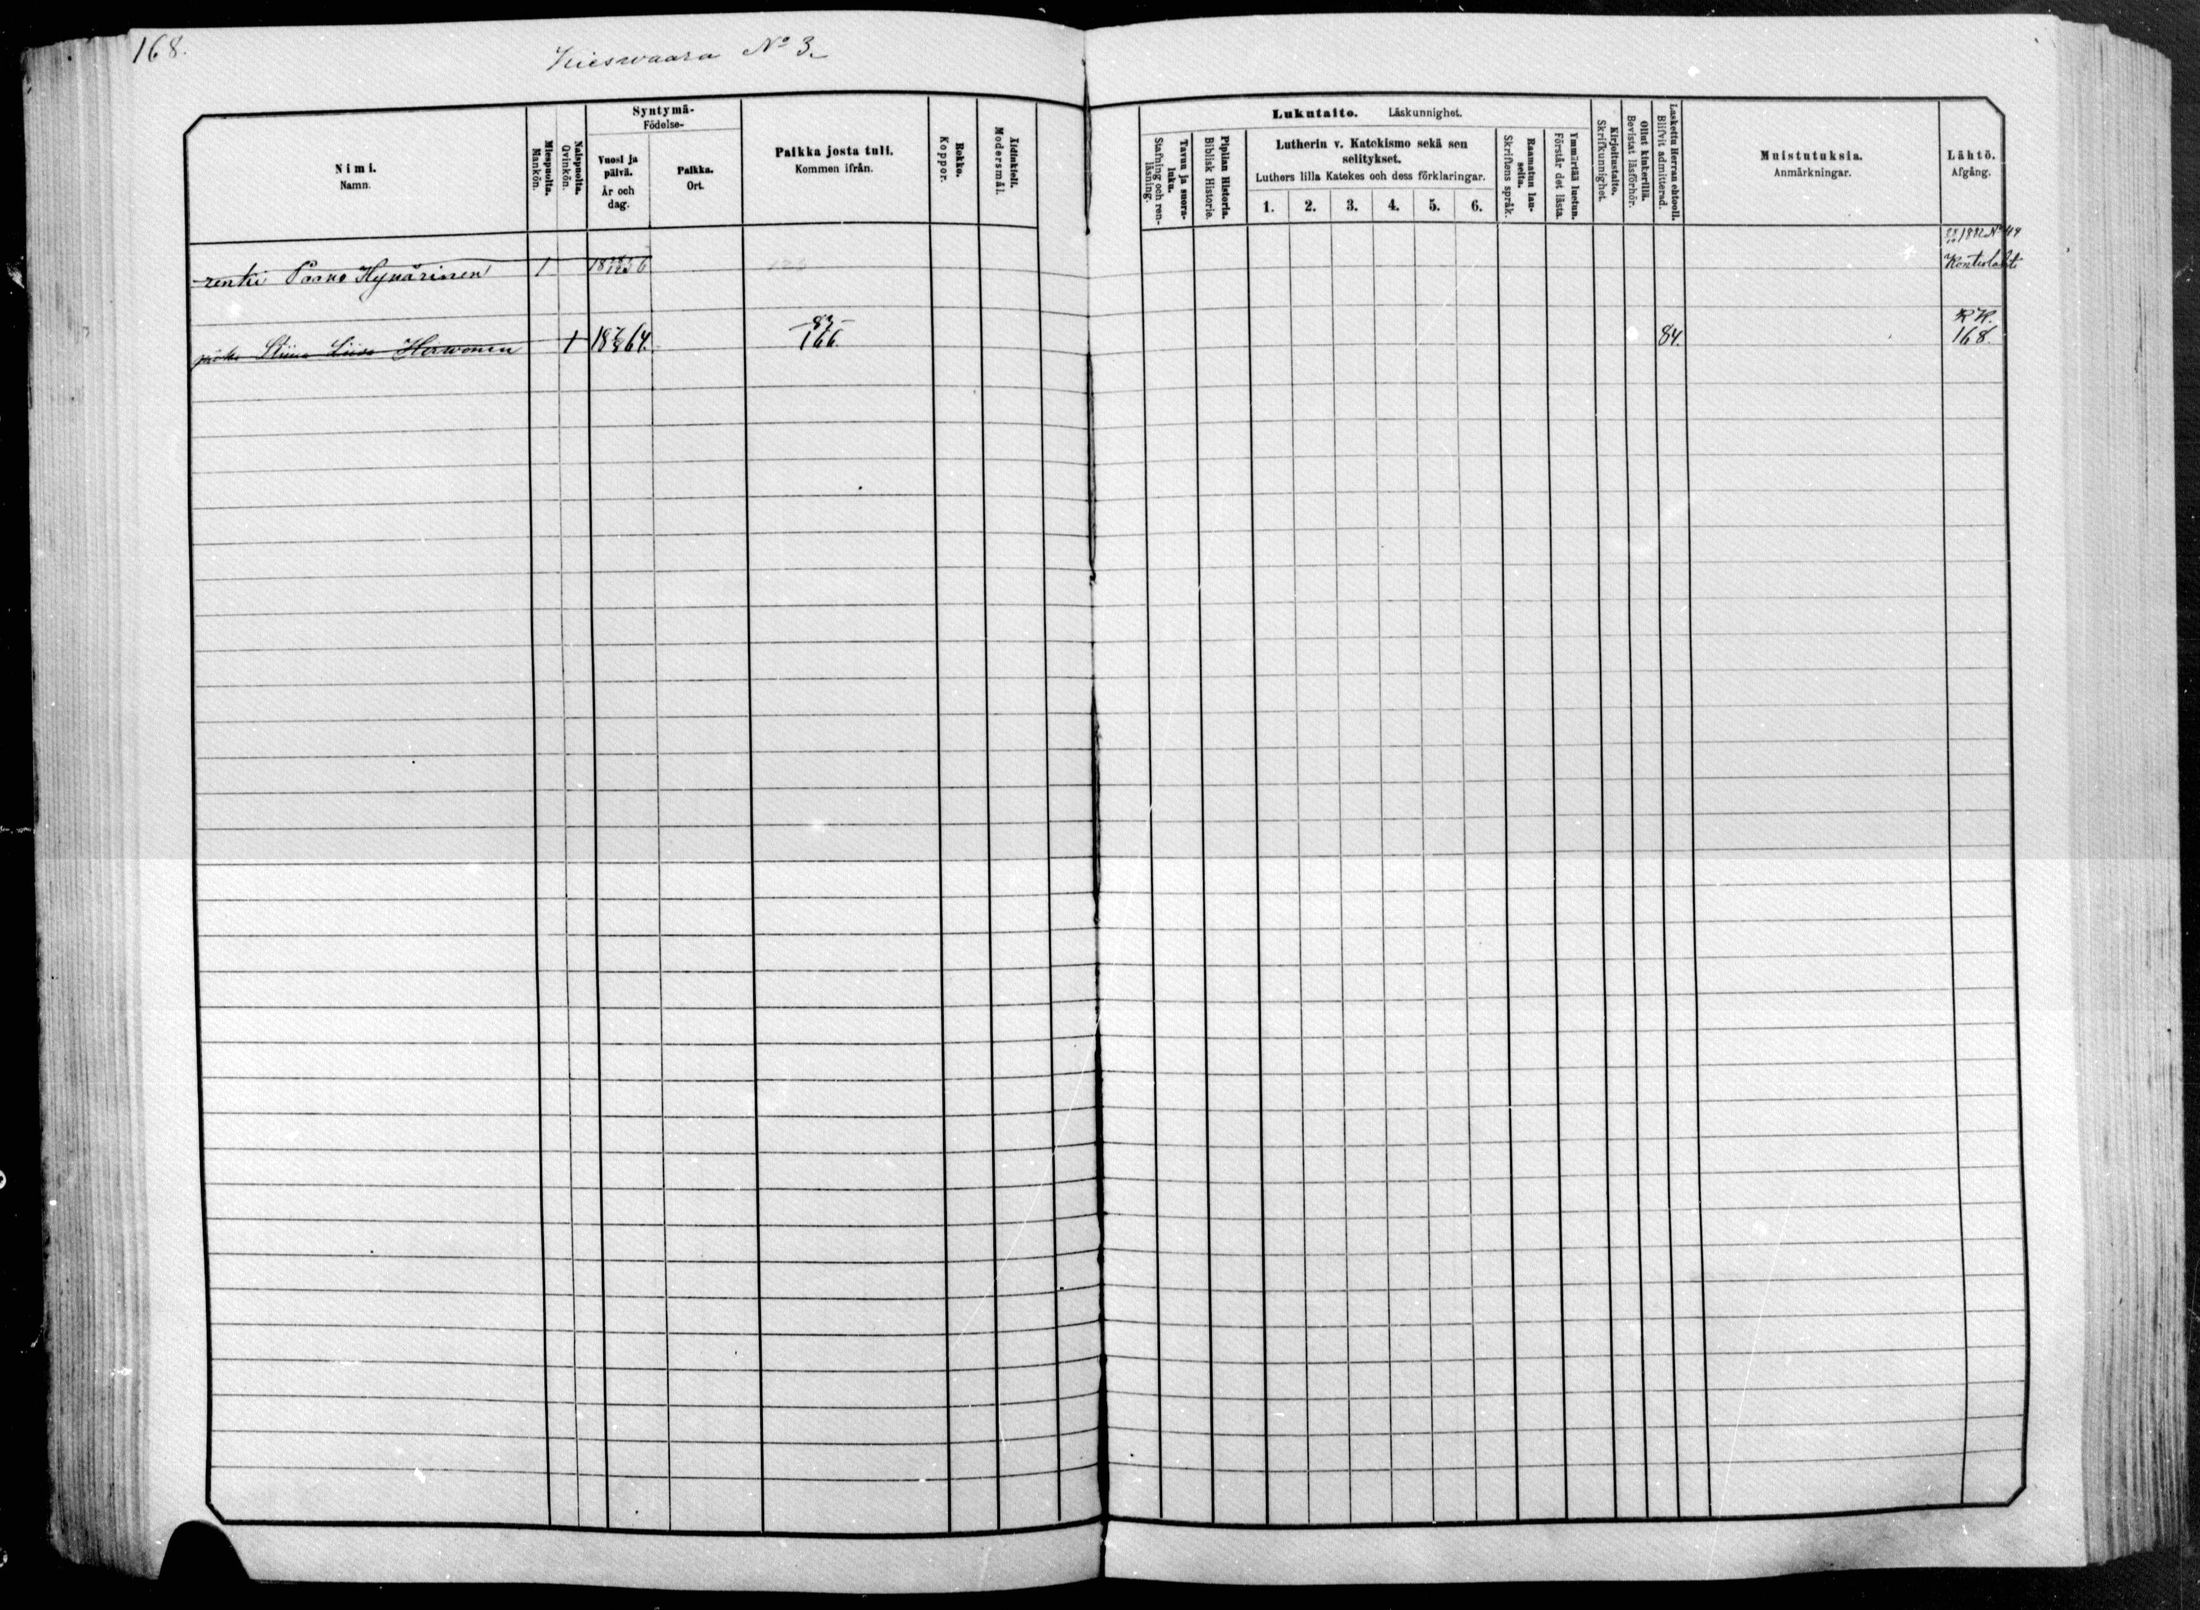 168.
Kieswaara No 3.
Nimi.
Namn.
Miespuolta.
Mankön.
Naispuolta.
Qvinkön.
Syntymä-
Födelse-
Vuosi ja
päivä.
År och
dag.
Paikka.
Ort.
Paikka josta tuli.
Kommen ifrån.
Rokko.
Koppor.
Äidinkieli.
Modersmål.
Lukutaito. Läskunnighet.
Tavuu ja suora-
luku.
Stafning och ren-
läsning.
Piplian Historia.
Biblisk Historie.
Lutherin v. Katekismo sekä sen
selitykset.
Luthers lilla Katekes och dess förklaringar.
1. 2. 3. 4. 5. 6.
Raamatun lau-
seita.
Skriftens språk.
Ymmärtää luetun.
Förstår det lästa.
Kirjoitustaito.
Skrifkunnighet.
Ollut kinkerillä.
Bevistat läsförhör.
Laskettu Herran ehtooll.
Blifvit admitterad.
Muistutuksia.
Anmärkningar.
Lähtö.
Afgång.
renki Paavo Hyvärinen 1 123 Kontiolahti
Stiina Liisa Hirwonen 1 18 7/8 64. 83 166. 84. RK. 168.